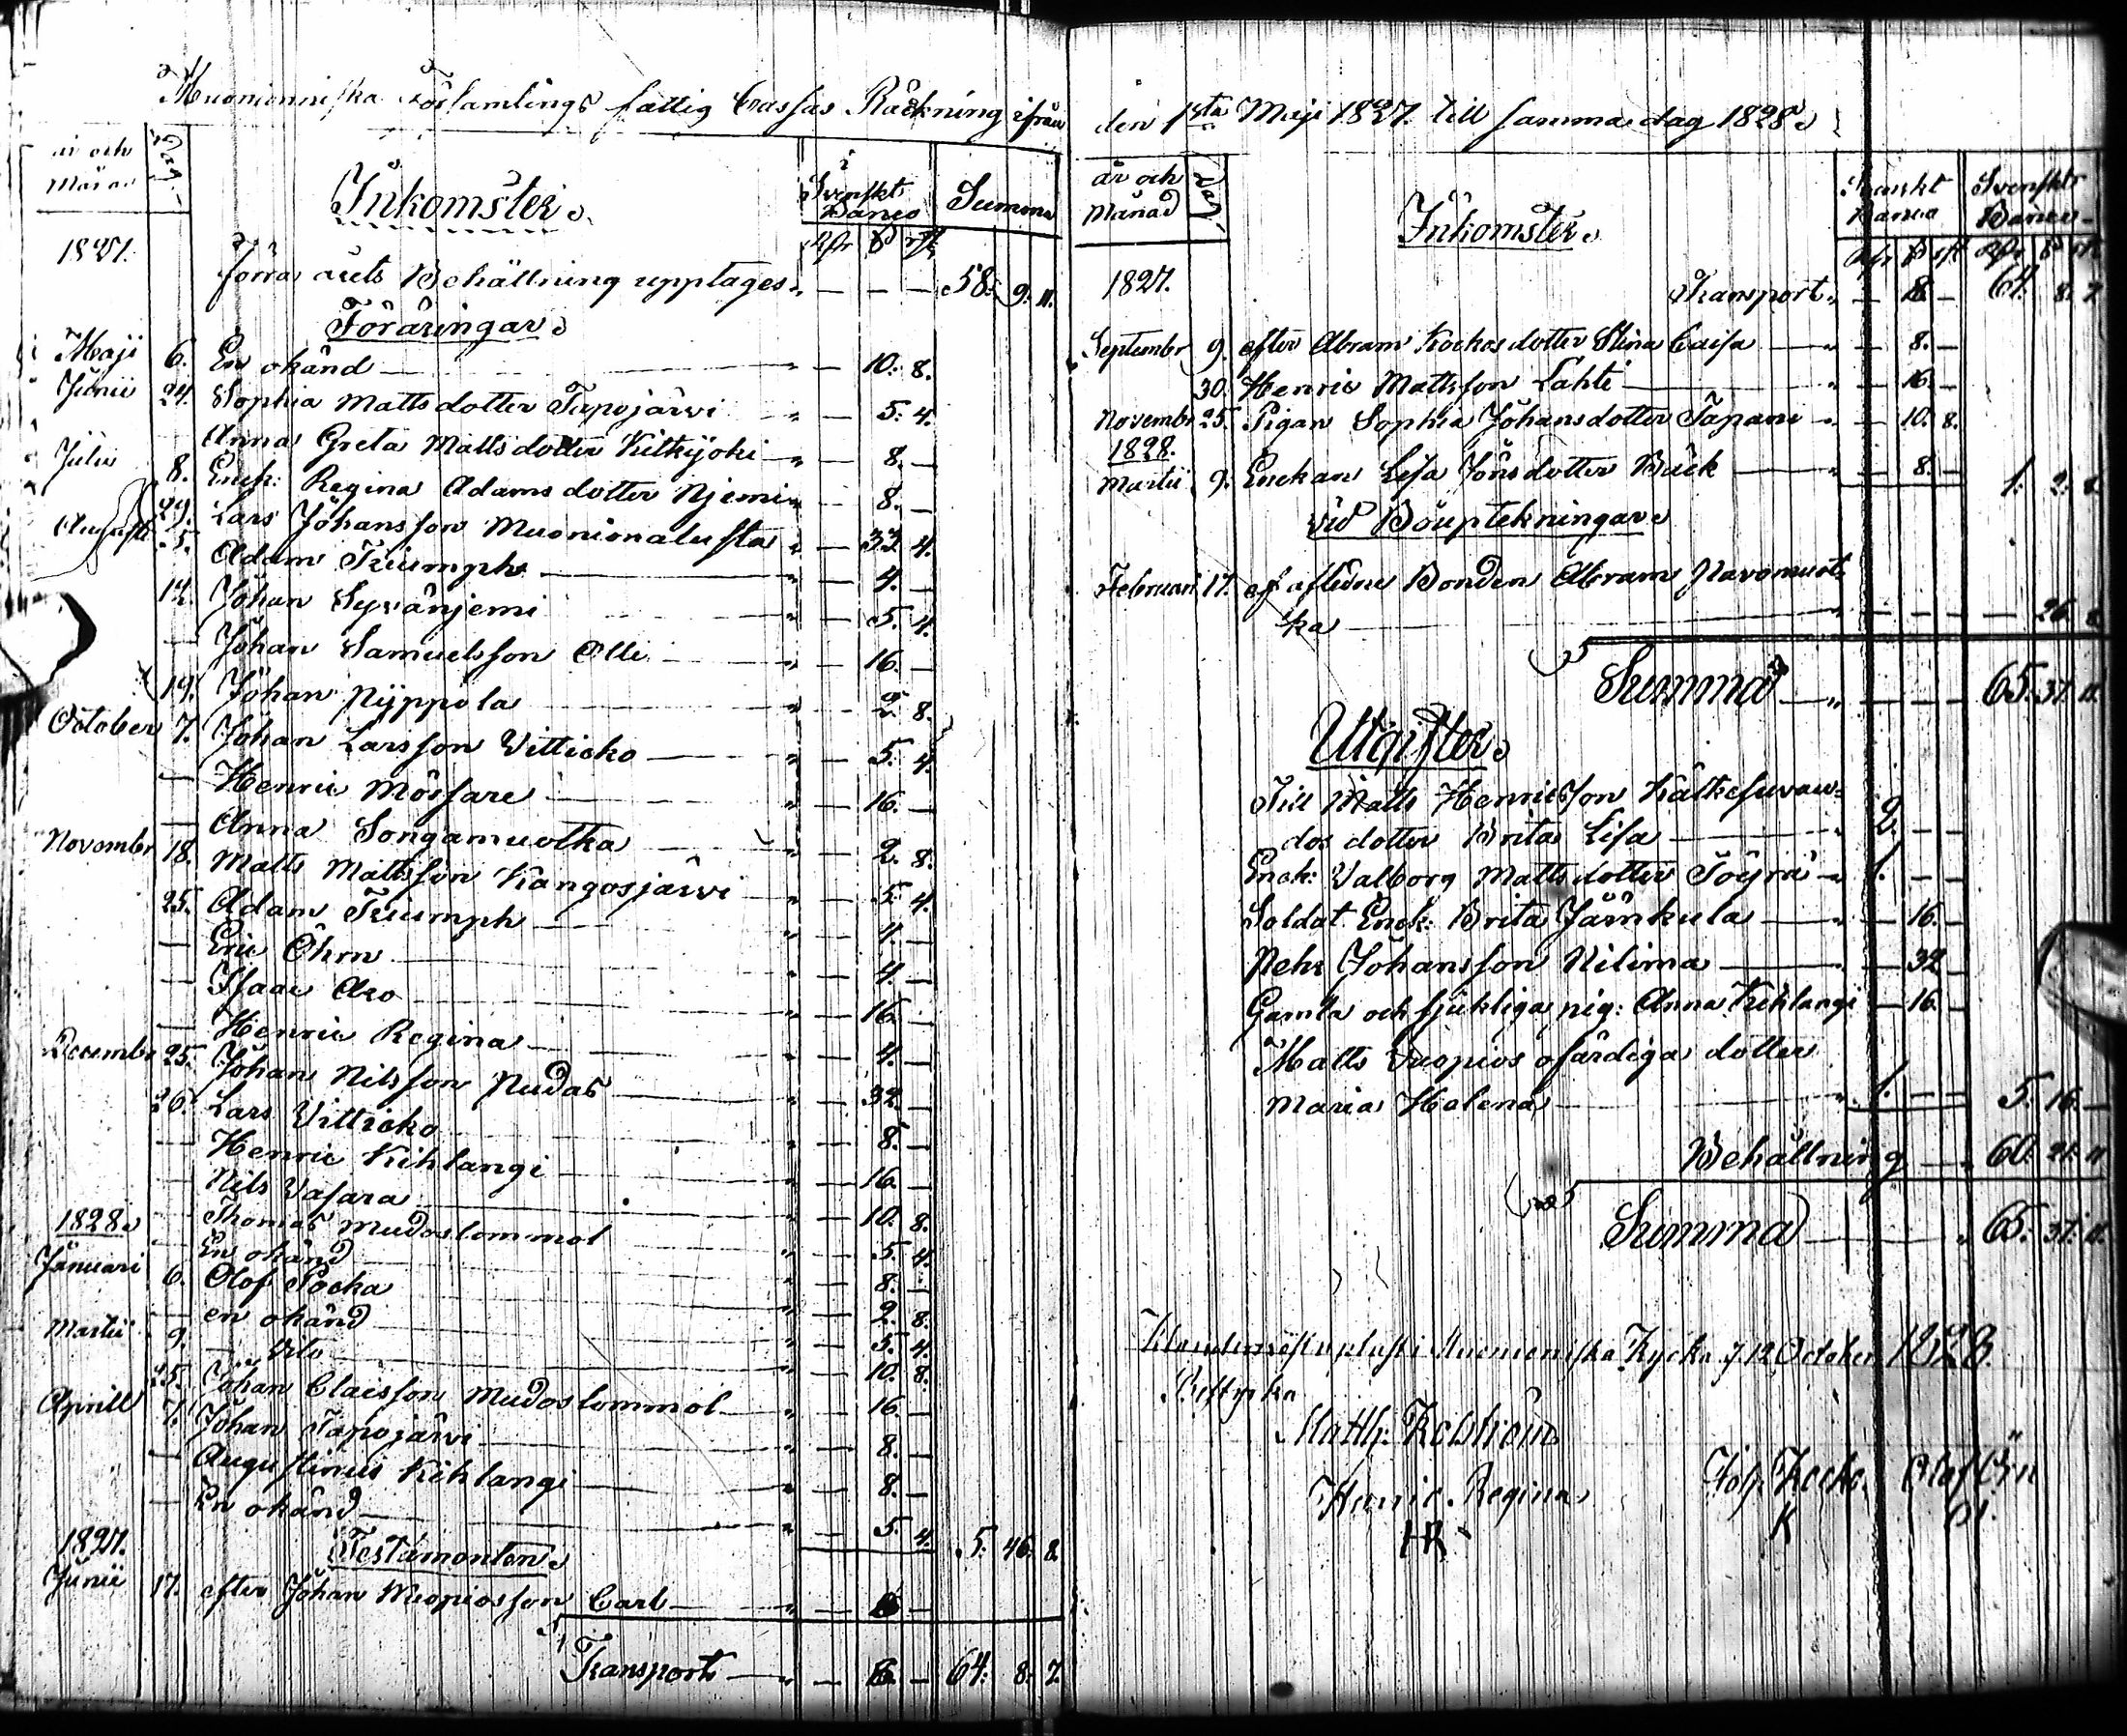 Muonioniska Församlings fattig Cassas Räckning ifrån
år och Månad Dag Inkomster i Svenskt Banco Summa
Rdr ß rst
1827. förra årets Behållning upptages „ — — — 58: 9. 11.
Föräringar
Maji 6. En okänd „ — 10. 8.
Junii 24. Sophia Mattsdotter Tapojärvi „ — 5. 4.
Anna Greta Mattsdotter Kitkijoki „ — 8. —
Julii 8. Enck: Regina Adamsdotter Njemi „ — 8. —
29. Lars Johansson Muonionalusta „ — 33 4.
Augusti 5. Adam Triumph „ — 4. —
12. Johan Syvänjemi „ — 5. 4.
— Johan Samuelsson Olli „ — 16. —
19. Johan Nyppola „ — 2. 8.
October 7. Johan Larsson Vitticko „ — 5. 4.
— Henric Mössare „ — 16. —
— Anna Songamuotka „ — 2. 8.
Novembr 18. Matts Mattsson Kangosjärvi „ — 5. 4.
25. Adam Triumph „ — 4. —
— Eric Öhrn „ — 4. —
— Isaac Aro „ — 16. —
— Henric Regina „ — 4. —
Decembr 25. Johan Nilsson Nudas „ — 32. —
26. Lars Vitticko „ — 8. —
— Henric Kihlangi „ — 16. —
— Nils Vasara „ — 10. 8.
— Thomas Mudoslommol „ — 5. 4.
1828.
— En okänd „ — 8. —
Januari 6. Olof Tocka „ — 2. 8.
— en okänd „ — 5. 4.
Martii 9. — Dito „ — 10. 8.
25. Johan Claësson Mudoslommol „ — 16. —
Aprill 7. Johan Tapojärvi „ — 8. —
— Augustinus Kihlangi „ — 8. —
— En okänd „ — 5. 4. 5. 46. 8.
1827. Testamenten
Junii 17. efter Johan Wuopiosson Carl „ — —
Transport „ — — 64: 8. 7.
den 1sta Maji 1827. till samma dag 1828.
år och Månad Dag Inkomster Svenskt Banco Svenskt Banco
Rdr ß rst Rdr ß rst
1827. Transport „ — — 64. 8. 7.
Septembr 9. efter Abram Kockos dotter Stina Caisa „ — 8. —
30. Henric Mattsson Lahti „ — 16. —
Novembr 25. Pigan Sophia Johansdotter Tapani „ — 10. 8.
1828.
Martii 9. Enckan Lisa Jönsdotter Bäck „ — 8. — 1. 2. 8.
vid Bouptekningar
Februari 17. ef. aflidne Bonden Abram Navamuot=
ka „ — — — — 26. 8.
Summa „ — — — 65. 37. 11.
Utgifter
Till Matts Henricsson Kätkesuvan=
dos dotter Brita Lisa „ 2. — —
Enck: Valborg Mattsdotter Töyrä „ 1. — —
Soldat Enck: Brita Järnkula „ — 16. —
Pehr Johansson Nilima „ — 32 —
Gamla och sjukliga pig: Anna Kihlangi — 16. —
Matts Vuopios ofärdiga dotter
Maria Helena „ 1. — — 5. 16. —
Behållning „ 60. 21. 11
Summa „ 65. 37. 11.
i Muonioniska Kyrka d. 12 October 1828.
Matth: Kolström
Henric Regina Joh. Kocko Olof Örn
HR K